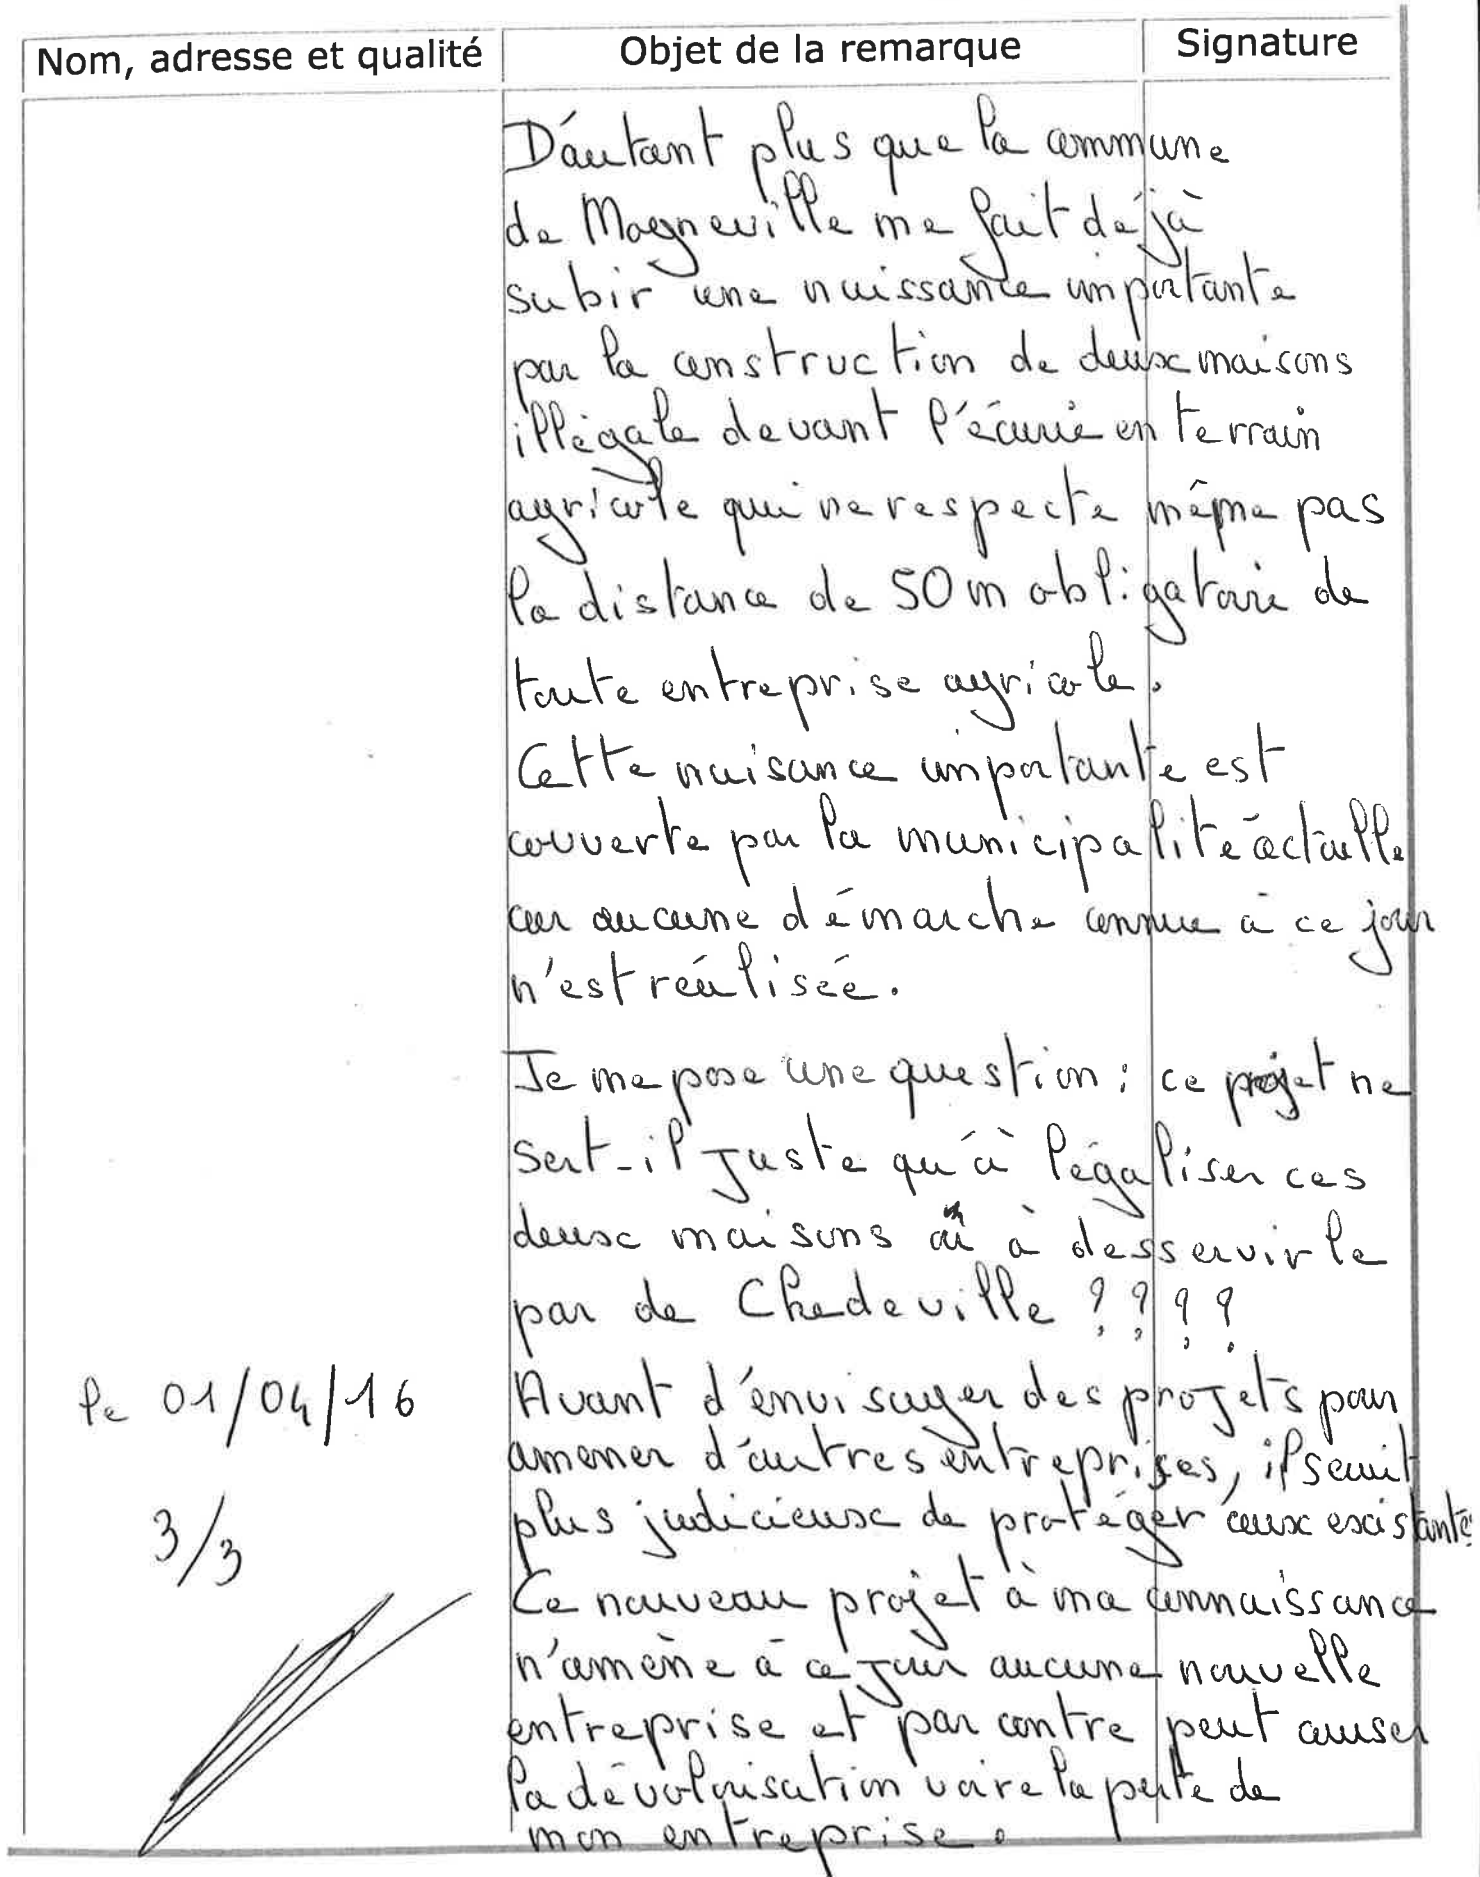 Nom, adresse et qualité
Objet de la remarque
Signature
D'autant plus que la commune
de Magneville me fait déjà
subir une nuissance importante
par la construction de deux maisons
illégale devant l'écurie en terrain
agricole qui ne respecte même pas
la distance de 50 m obligatoire de
toute entreprise agricole.
Cette nuisance importante est
couverte par la municipalité actuelle
car aucune démarche connue à ce jour
n'est réalisée.
Je me pose une question : ce projet ne
sert-il juste qu'à légaliser ces
deux maisons à desservir le
par de Chedeville ????
le 01/04/16
Avant d'envisager des projets pour
amener d'autres entreprises, il serait
3/3
plus judicieux de protéger ceux existante
Ce nouveau projet à ma connaissance
n'amène à ce jour aucune nouvelle
entreprise et par contre peut causer
la dévalorisation voire la perte de
mon entreprise.